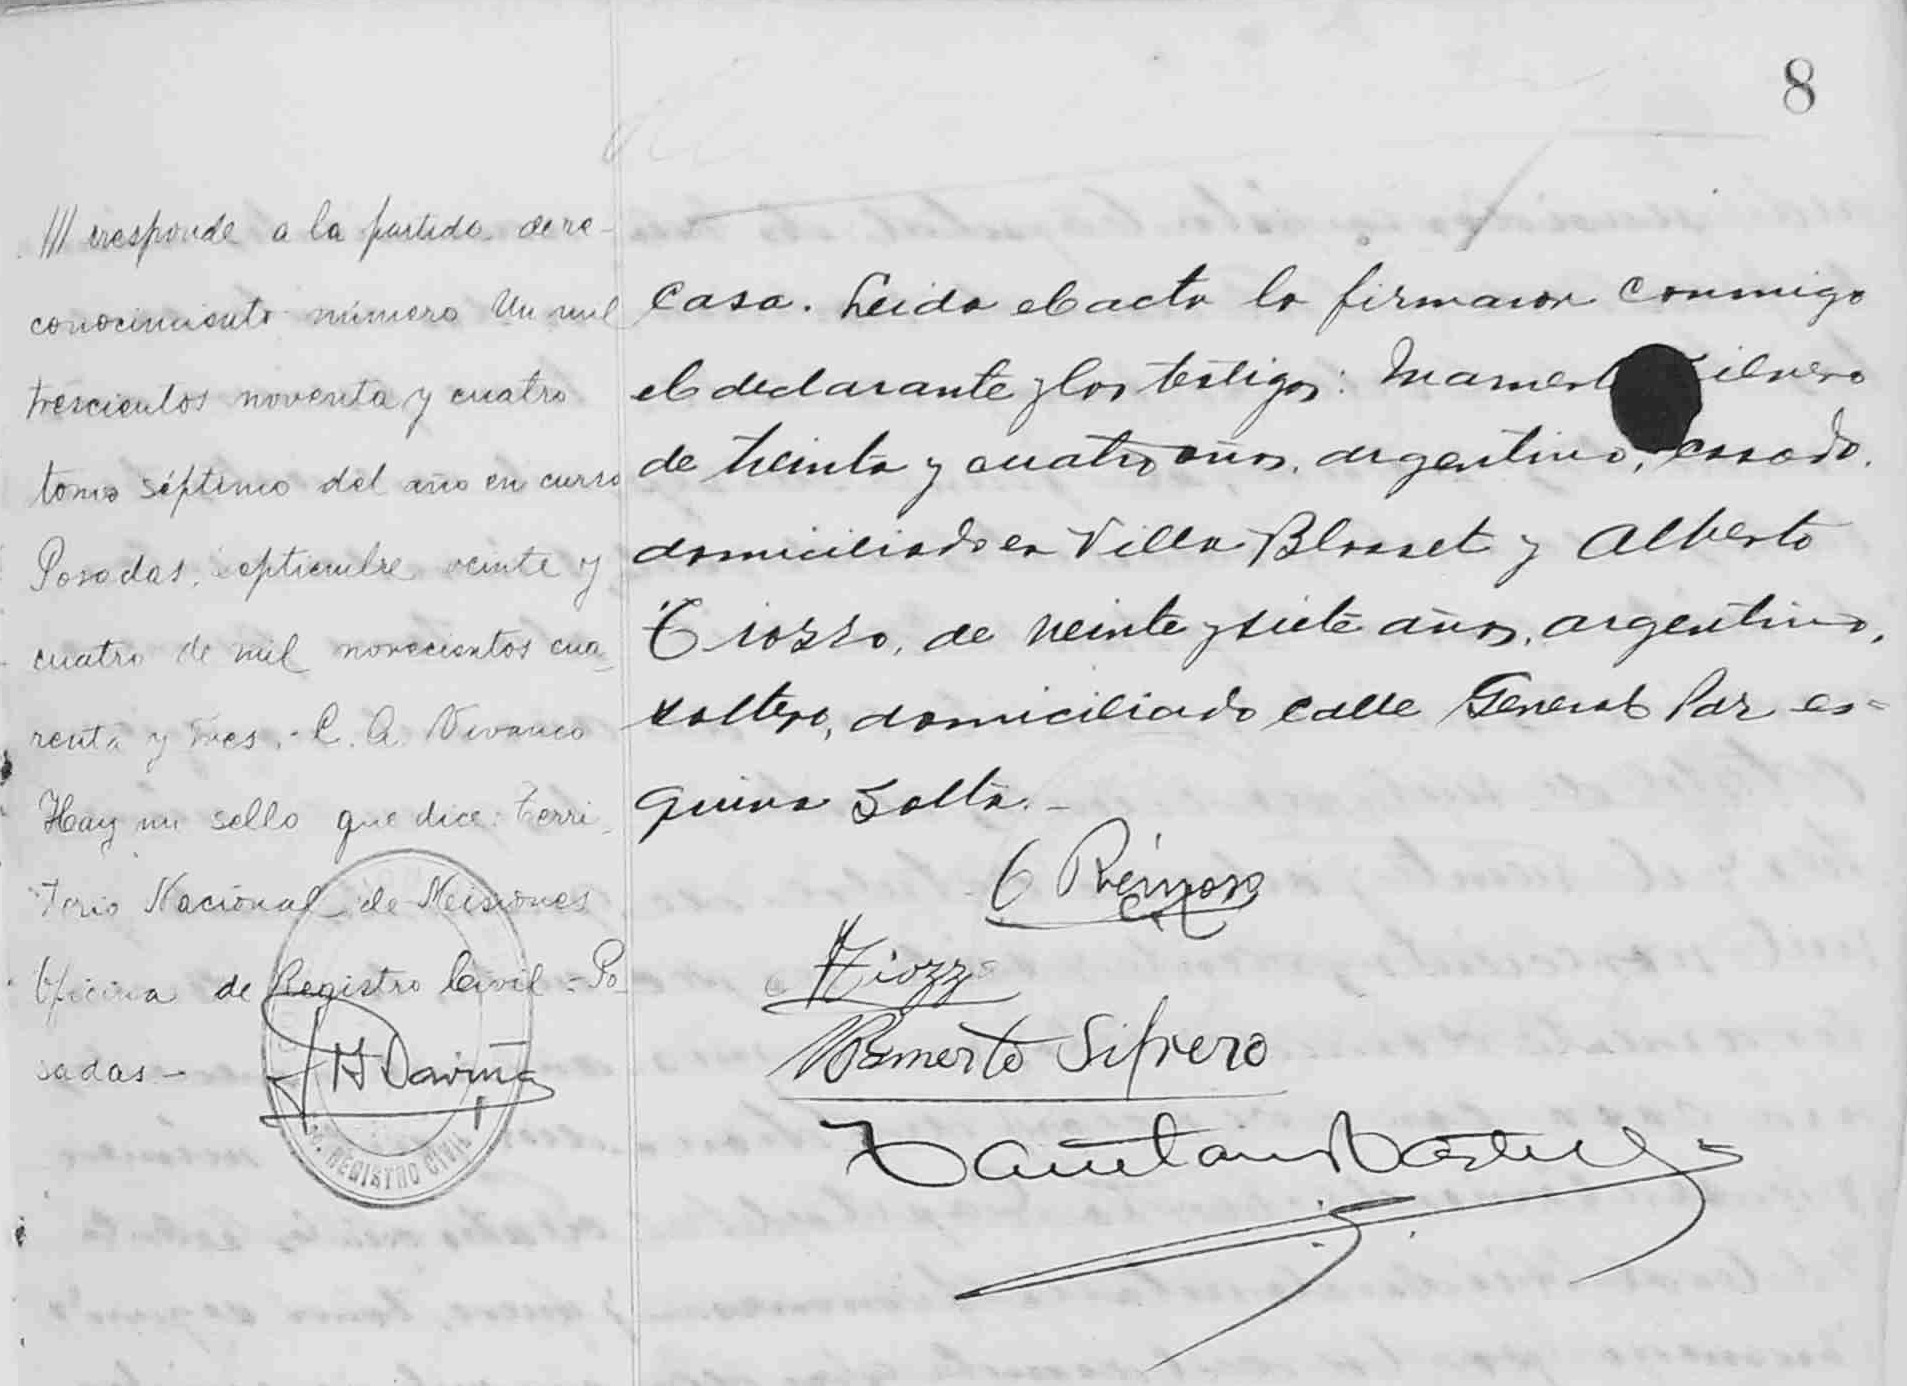 8
/// responde a la partida de re-
conocimiento número Un mil
trescientos noventa y cuatro
tomo séptimo del año en curso
Posadas, septiembre veinte y
cuatro de mil novecientos cua-
renta y tres.- C. A. Vivanco
Hay un sello que dice: Terri-
torio Nacional de Misiones
Oficina de Registro Civil - Po
sadas -
REGISTRO CIVIL
casa. Leida el acta la firmaron conmigo
el declarante y los testigos:
de treinta y cuatro años, argentino, casado,
domiciliado en Villa Blosset y Alberto
Tiozzo, de veinte y siete años, argentino,
soltero, domiciliado calle General Paz es=
quina Salta.-
Tiozzo
Mamerto Silvero